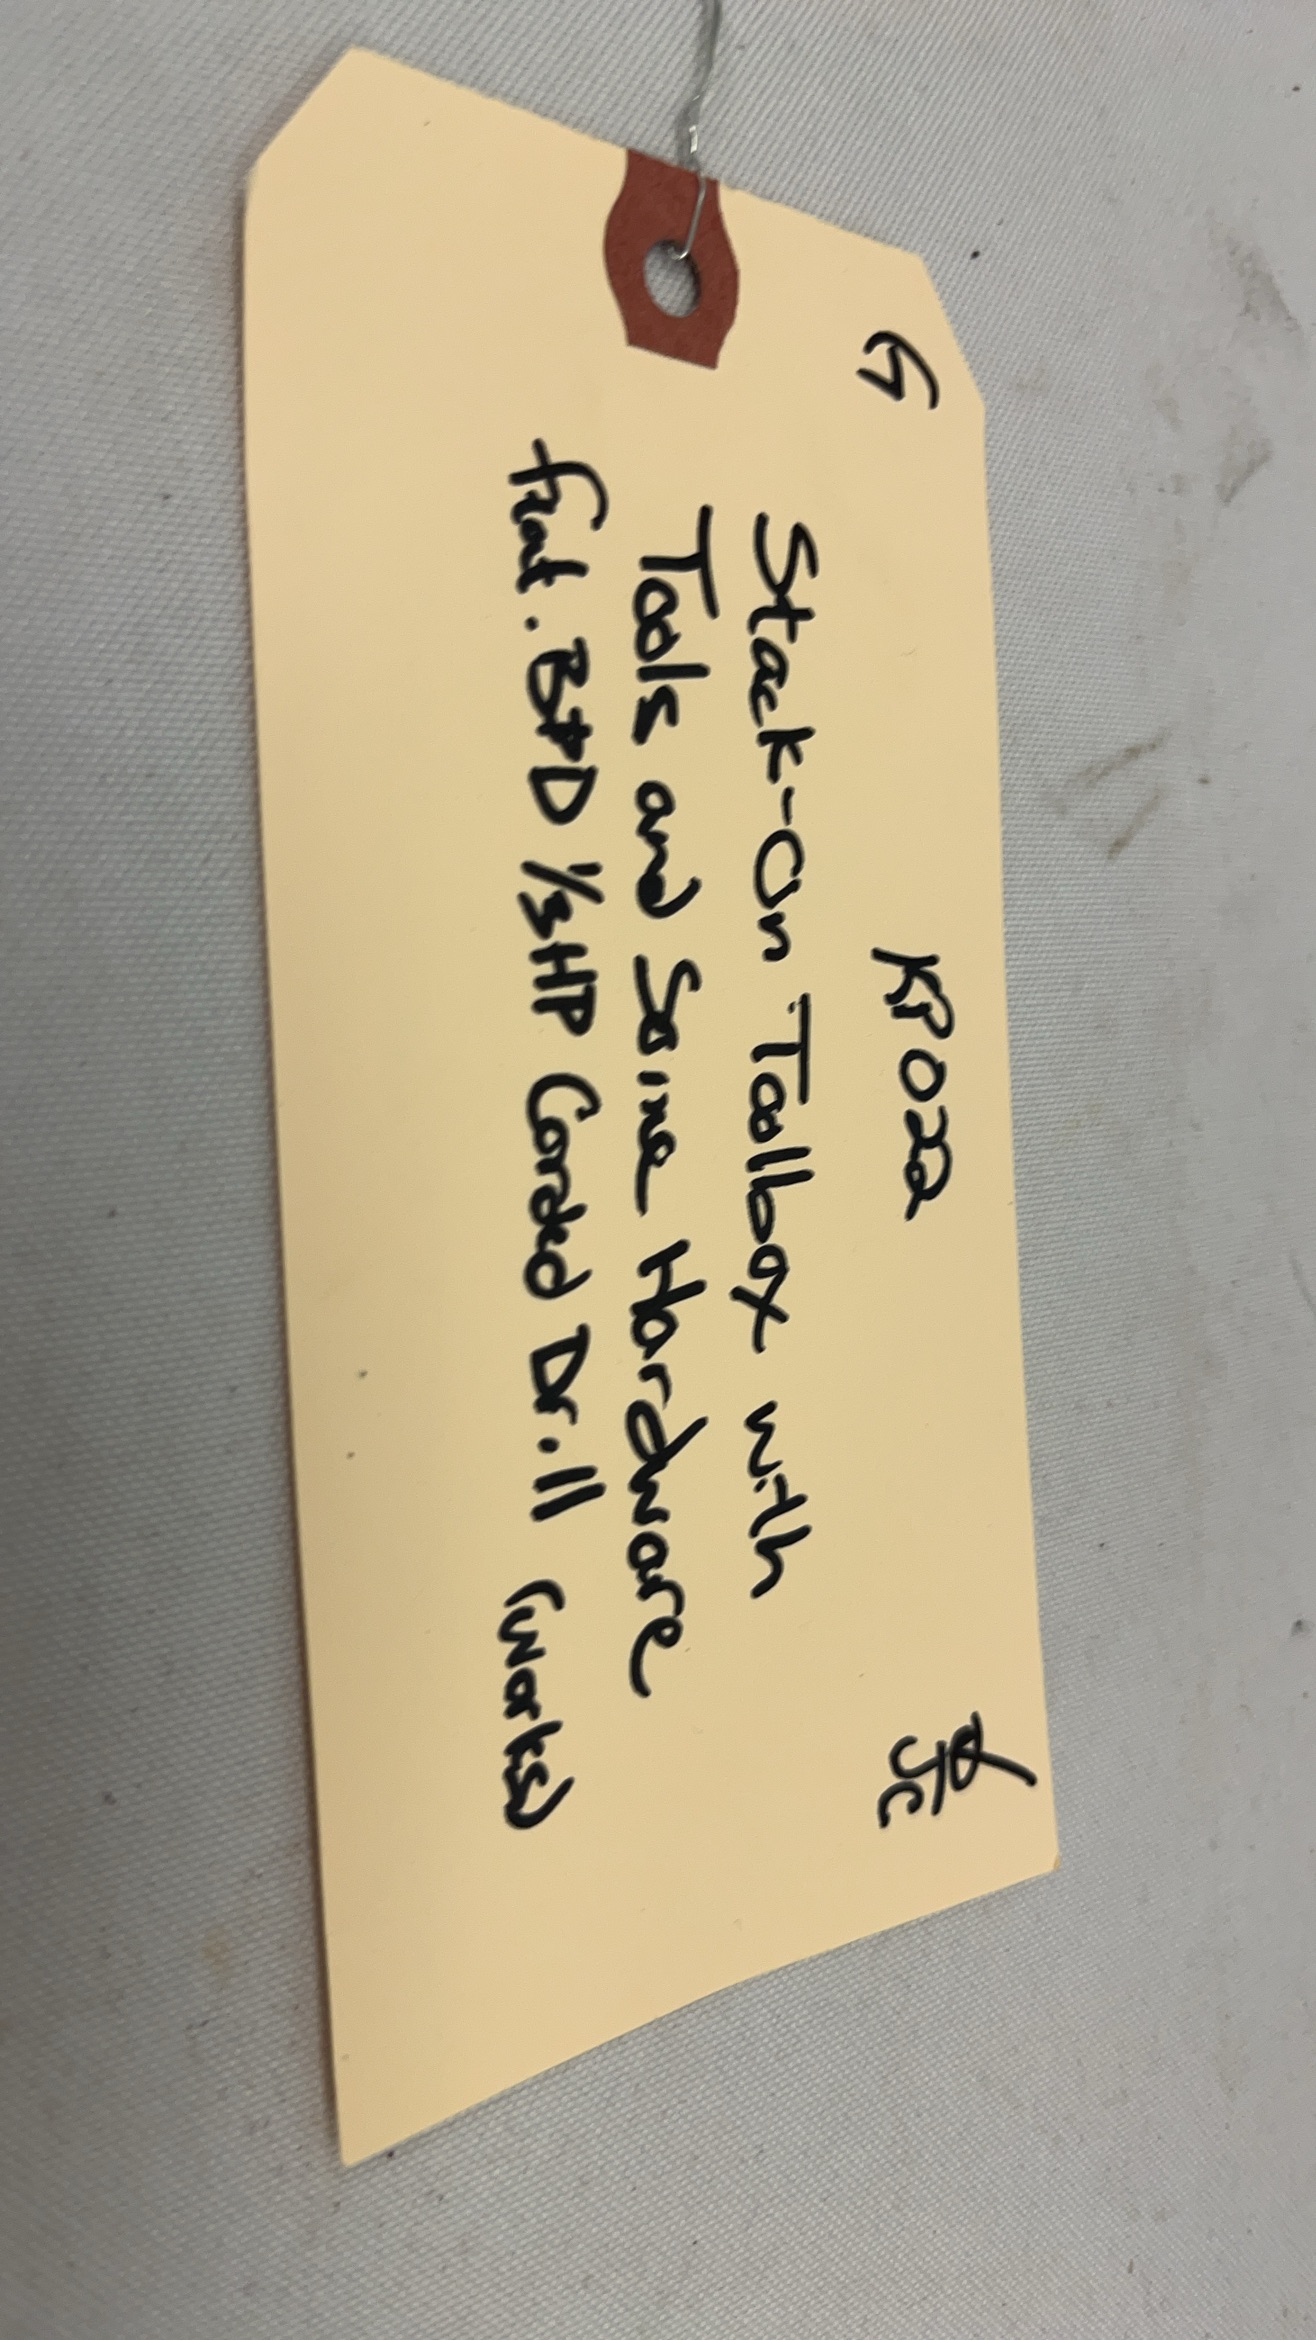 G KP022 JC
Stack-On Toolbox with
Tools and Some Hardware
feat. B+D 1/3HP Corded Drill (works)